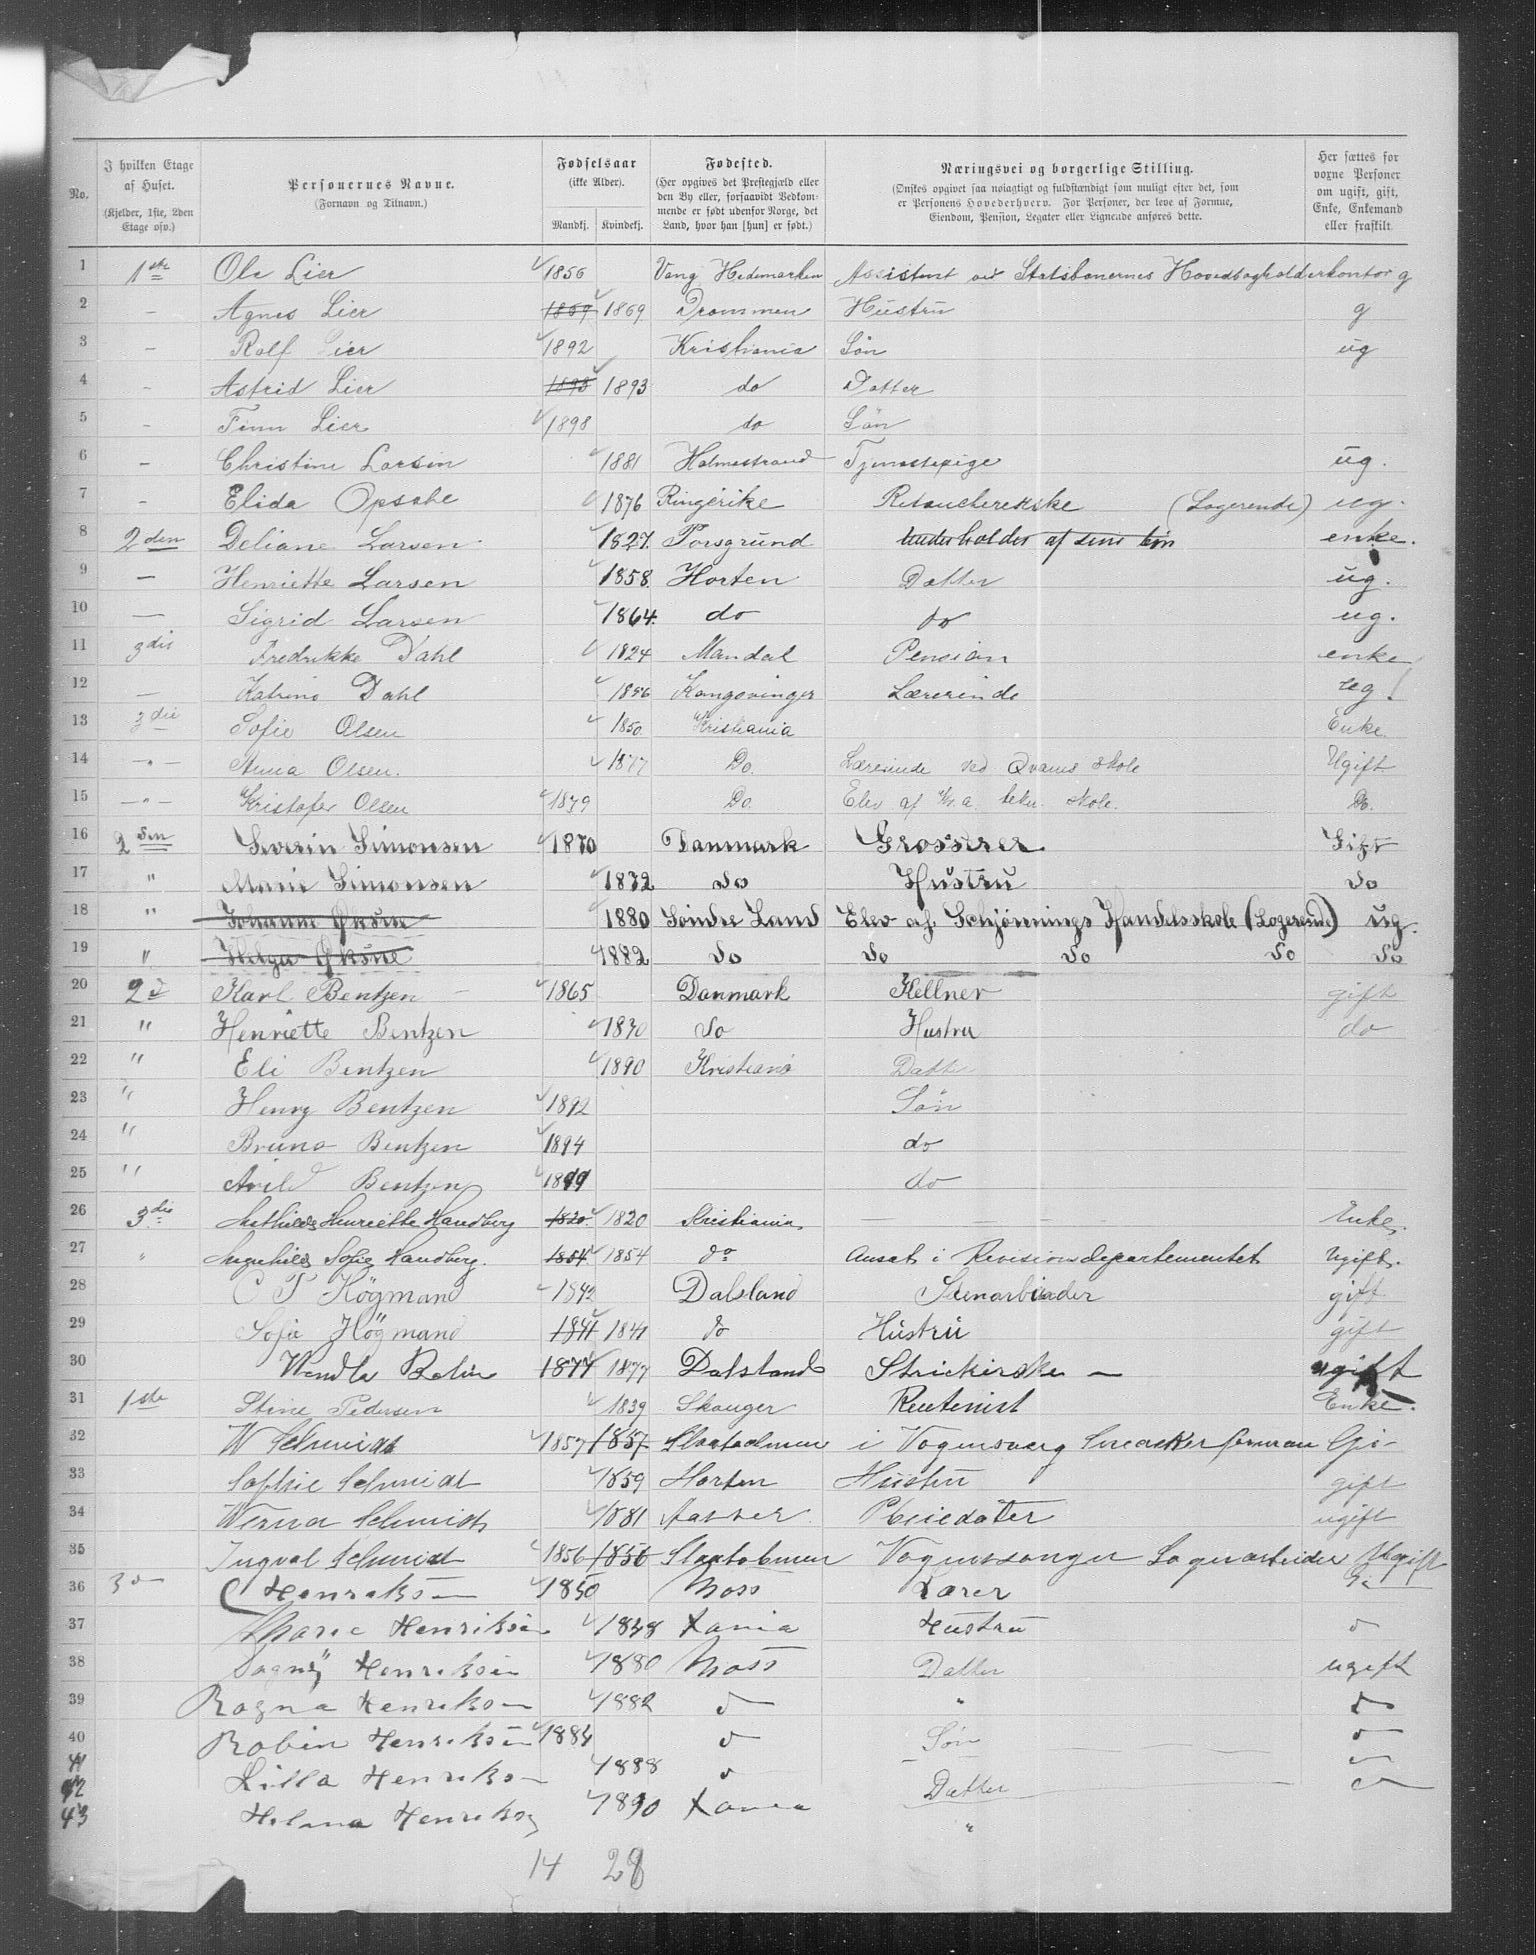 No. | I hvilken Etage af Huset. (Kjelder, 1ste, 2den Etage osv.) | Personernes Navne. (Fornavn og Tilnavn.) | Fødselsaar (ikke Alder). Mandkj. Kvindekj. | Fødested. (Her opgives det Prestegjæld eller den By eller, forsaavidt Vedkommende er født udenfor Norge, det Land, hvor han [hun] er født.) | Næringsvei og borgerlige Stilling. (Ønskes opgivet saa nøiagtigt og fuldstændigt som muligt efter det, som er Personens Hovederhverv. For Personer, der leve af Formue, Eiendom, Pension, Legater eller Lignende anføres dette. | Her sættes for voxne Personer om ugift, gift, Enke, Enkemand eller fraskilt.
1 1ste Ole Lier 1856 Vang Hedemarken Assistent ved Statsbanernes Hovedbogholderkontor g
2 — Agnes Lier 1869 1869 Drammen Hustru g
3 — Rolf Lier 1892 Kristiania Søn ug
4 - Astrid Lier 1893 1893 do Datter
5 - Finn Lier 1898 do Søn
6 — Christine Larsen 1881 Holmestrand Tjenestepige ug.
7 - Elida Opsahl 1876 Ringerike Retoucherekske (Logerende) ug.
8 2den Deliane Larsen 1827. Porsgrund Underholdes af sine enke.
9 — Henriette Larsen 1858. Horten Datter ug.
10 — Sigrid Larsen 1864. do do ug.
11 3die Fredrikke Dahl 1824 Mandal Pension enke
12 — Katrine Dahl 1856 Kongsvinger Lærerinde ug
13 3die Sofie Olsen 1850. Kristiania Enke.
14 —"— Anna Olsen. 1877 Do. Lærerinde ved Qvams skole Ugift.
15 —"— Kristofer Olsen 1879 Do. Elev af Kr.a. tekn. skole. Do.
16 2den Severin Simonsen 1870 Danmark Grosserer Gift
17 " Marie Simonsen 1872 do Hustru do
18 " Johanne Øksne 1880 Søndre Land Elev af Schjønnings Handelsskole (Logerende) ug.
19 " Helga Øksne 1882 do do do do do
20 2d Karl Bentzen — 1865 Danmark Kellner gift
21 " Henriette Bentzen 1870 do Hustru do
22 " Eli Bentzen 1890 Kristiania Datter
23 " Henry Bentzen 1892 Søn
24 " Bruno Bentzen 1894 do
25 " Arild Bentzen 1899 do
26 3die Mathilde Henriette Handberg 1820. 1820 Kristiania. — — — Enke.
27 " Magnhild Sofie Handberg. 1854 1854 do Ansat i Revisionsdepartementet Ugift.
28 C T Högmand 1842 Dalsland Stenarbeider gift
29 Sofie Högmand 1841 1841 do Hustru gift
30 Wendla 1877 1877 Dalsland Strickerske — ugift
31 1ste Stine Pedersen 1839 Skauger Rentenist Enke.
32 W Schmidt 1857 1857 i Vognsverg formann Gi-
33 Sophie Schmidt 1859 Horten Hustru gift
34 Werna Schmidt 1881 Pleiedatter ugift
35 Ingval Schmidt 1856 1856 Ugift
36 3d C Henriksen 1850 Moss Lærer Gi
37 Marie Henriksen 1848 Xania Hustru d
38 Dagny Henriksen 1880 Moss Datter ugift
39 Ragna Henriksen 1882 d " d
40 Robin Henriksen 1884 d Søn d
41 Lilla Henriksen 1888 d Datter
42
43 Helena Henriksen 1890 Xania "
14 28